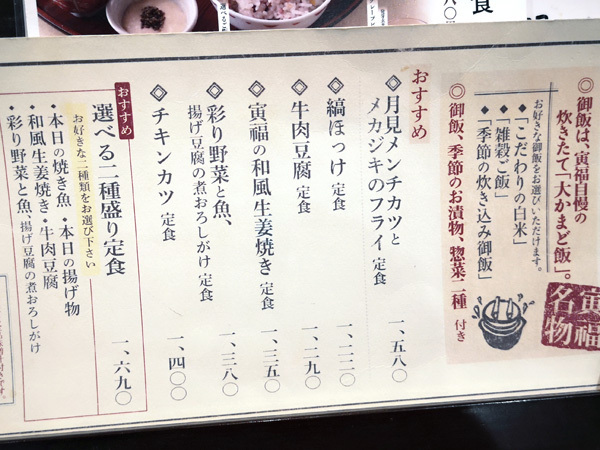 ◎御飯は、寅福自慢の
炊きたて「大かまど飯」。
お好きな御飯をお選びいただけます。
◆「こだわりの白米」
◆「雑穀ご飯」
◆「季節の炊き込み御飯」
◎御飯、季節のお漬物、惣菜二種 付き
寅福名物
おすすめ
◈月見メンチカツと
メカジキのフライ 定食 一、五八〇
◈縞ほっけ 定食 一、三三〇
◈牛肉豆腐 定食 一、二九〇
◈寅福の和風生姜焼き 定食 一、三五〇
◈彩り野菜と魚、
揚げ豆腐の煮おろしがけ 定食 一、三八〇
◈チキンカツ 定食 一、四〇〇
おすすめ
選べる二種盛り定食 一、六九〇
お好きな二種類をお選び下さい
・本日の焼き魚 ・本日の揚げ物
・和風生姜焼き ・牛肉豆腐
・彩り野菜と魚、揚げ豆腐の煮おろしがけ
食